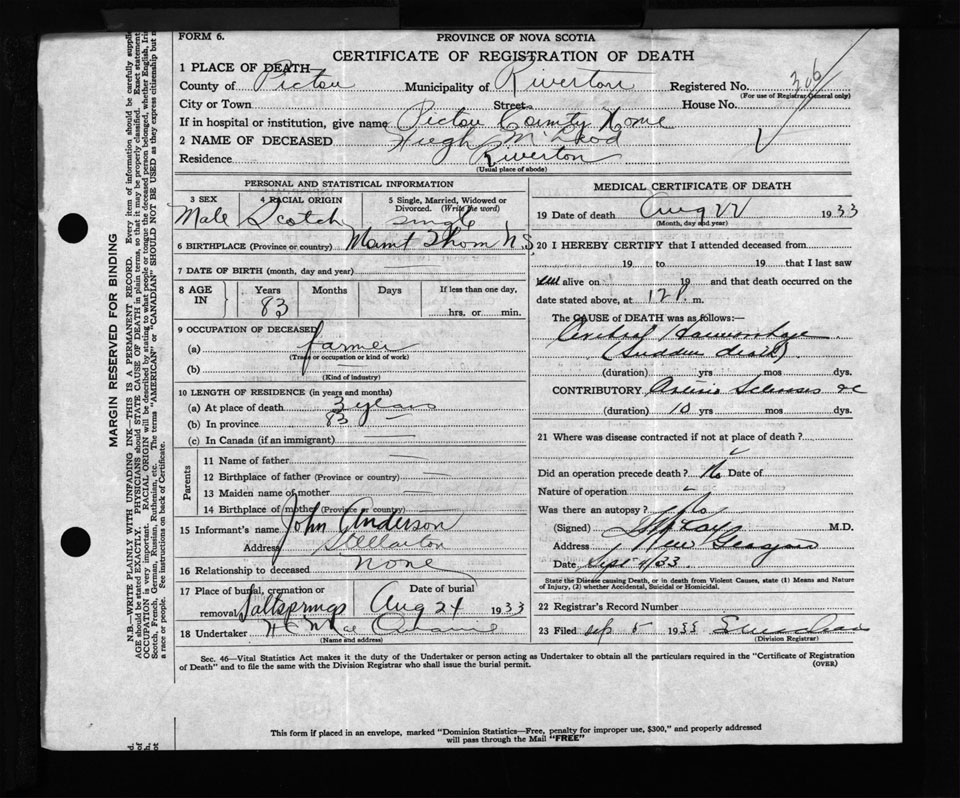 FORM 6.
PROVINCE OF NOVA SCOTIA
CERTIFICATE OF REGISTRATION OF DEATH
1 PLACE OF DEATH
County of Pictou Municipality of Riverton Registered No. 306
(For use of Registrar-General only)
City or Town Street House No.
If in hospital or institution, give name Pictou County Home
2 NAME OF DECEASED Hugh McLeod
Residence Riverton
(Usual place of abode)
PERSONAL AND STATISTICAL INFORMATION
3 SEX 4 RACIAL ORIGIN 5 Single, Married, Widowed or Divorced. (Write the word)
Male Scotch single
6 BIRTHPLACE (Province or country) Mount Thom N.S.
7 DATE OF BIRTH (month, day and year)
8 AGE IN Years Months Days If less than one day,
83 hrs. or min.
9 OCCUPATION OF DECEASED
(a) farmer
(Trade or occupation or kind of work)
(b)
(Kind of industry)
10 LENGTH OF RESIDENCE (in years and months)
(a) At place of death 3 years
(b) In province 83
(c) In Canada (if an immigrant)
Parents
11 Name of father
12 Birthplace of father (Province or country)
13 Maiden name of mother
14 Birthplace of mother (Province or country)
15 Informant's name John Anderson
Address Stellarton
16 Relationship to deceased none
17 Place of burial, cremation or removal Saltsprings Date of burial Aug 24 1933
18 Undertaker
(Name and address)
MEDICAL CERTIFICATE OF DEATH
19 Date of death Aug 22 1933
(Month, day and year)
20 I HEREBY CERTIFY that I attended deceased from
19 to 19 that I last saw
alive on 19 and that death occurred on the
date stated above, at 12 P. m.
The CAUSE OF DEATH was as follows:—
Cerebral Haemorrhage
(Sudden death)
(duration) yrs mos dys.
CONTRIBUTORY
(duration) 10 yrs mos dys.
21 Where was disease contracted if not at place of death?
Did an operation precede death? No Date of
Nature of operation
Was there an autopsy? No
(Signed) M.D.
Address New Glasgow
Date Sept 4/33
State the Disease causing Death, or in death from Violent Causes, state (1) Means and Nature
of Injury, (2) whether Accidental, Suicidal or Homicidal.
22 Registrar's Record Number
23 Filed Sep 5 1933
(Division Registrar)
Sec. 46—Vital Statistics Act makes it the duty of the Undertaker or person acting as Undertaker to obtain all the particulars required in the "Certificate of Registration
of Death" and to file the same with the Division Registrar who shall issue the burial permit.
(OVER)
This form if placed in an envelope, marked "Dominion Statistics—Free, penalty for improper use, $300," and properly addressed
will pass through the Mail "FREE"
MARGIN RESERVED FOR BINDING
N.B.—WRITE PLAINLY WITH UNFADING INK—THIS IS A PERMANENT RECORD. Every item of information should be carefully supplied
AGE should be stated EXACTLY. PHYSICIANS should STATE CAUSE OF DEATH in plain terms, so that it may be properly classified. Exact statement
OCCUPATION is very important. RACIAL ORIGIN will be described by stating to what people or tongue the deceased person belonged, whether English, Iri
Scotch, French, German, Russian, Ruthenian, etc. The terms "AMERICAN" or "CANADIAN" SHOULD NOT BE USED as they express citizenship but n
a race or people. See instructions on back of Certificate.